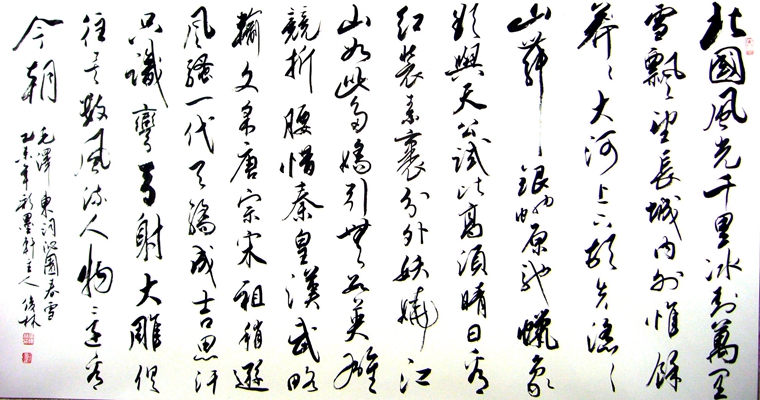 北國風光千里冰封萬里
雪飄望長城內外惟餘
莽〻大河上下頓失滔〻
山舞銀蛇原馳蠟象
欲與天公試比高須晴日看
紅裝素裹分外妖嬈江
山如此多嬌引無數英雄
競折腰惜秦皇漢武略
輸文采唐宗宋祖稍遜
風騷一代天驕成吉思汗
只識彎弓射大雕俱
往矣數風流人物還看
今朝
毛澤東詞沁園春雪
乙未年彩墨軒主人俊林